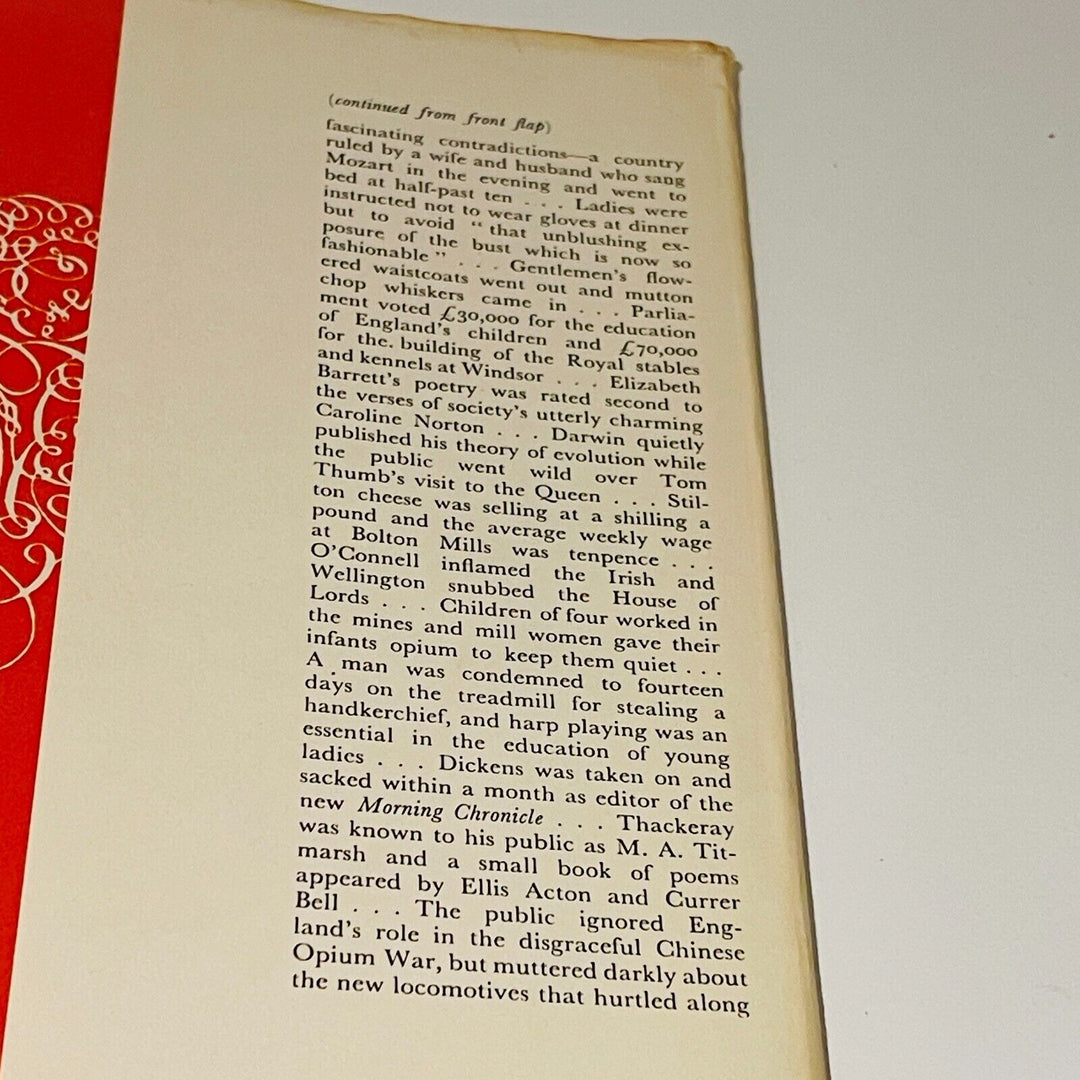 (continued from front flap)
fascinating contradictions—a country
ruled by a wife and husband who sang
Mozart in the evening and went to
bed at half-past ten . . . Ladies were
instructed not to wear gloves at dinner
but to avoid “ that unblushing ex-
posure of the bust which is now so
fashionable ” . . . Gentlemen's flow-
ered waistcoats went out and mutton
chop whiskers came in . . . Parlia-
ment voted £30,000 for the education
of England's children and £70,000
for the. building of the Royal stables
and kennels at Windsor . . . Elizabeth
Barrett's poetry was rated second to
the verses of society's utterly charming
Caroline Norton . . . Darwin quietly
published his theory of evolution while
the public went wild over Tom
Thumb's visit to the Queen . . . Stil-
ton cheese was selling at a shilling a
pound and the average weekly wage
at Bolton Mills was tenpence . . .
O'Connell inflamed the Irish and
Wellington snubbed the House of
Lords . . . Children of four worked in
the mines and mill women gave their
infants opium to keep them quiet . . .
A man was condemned to fourteen
days on the treadmill for stealing a
handkerchief, and harp playing was an
essential in the education of young
ladies . . . Dickens was taken on and
sacked within a month as editor of the
new Morning Chronicle . . . Thackeray
was known to his public as M. A. Tit-
marsh and a small book of poems
appeared by Ellis Acton and Currer
Bell . . . The public ignored Eng-
land's role in the disgraceful Chinese
Opium War, but muttered darkly about
the new locomotives that hurtled along